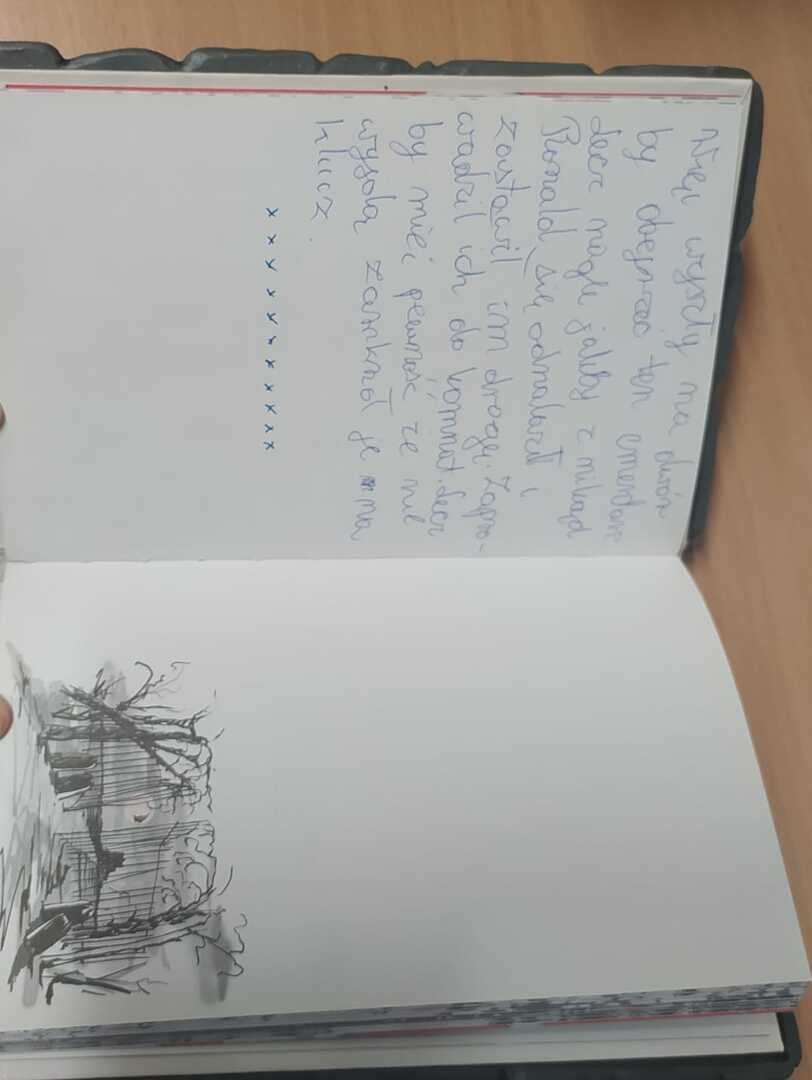 Więc wyszły na dwór
by obejrzeć ten cmentarz
lecz nagle jakby z nikąd
Ronald się odnalazł i
zastawił im drogę. Zapro-
wadził ich do komnat. lecz
by mieć pewność że nie
wyjdą zamknął je na
klucz.
x x x x x x x x x x x